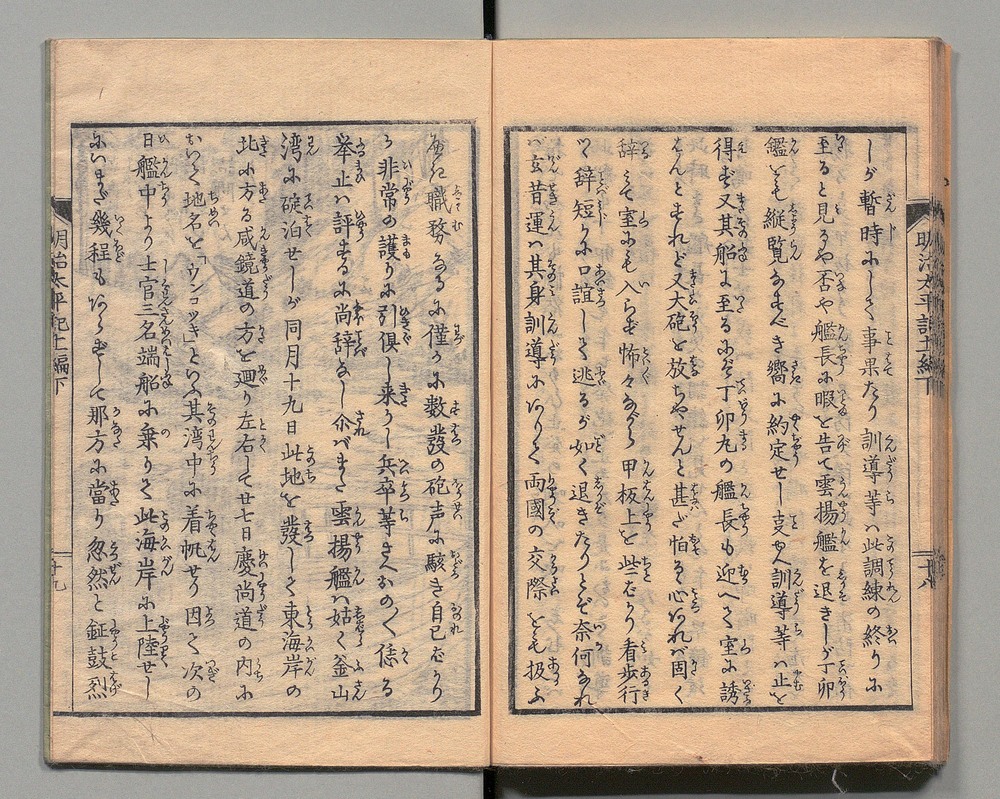 しが暫時にして事果たり訓導等ハ此調練の終りに
至ると見るや否や艦長に暇を告て雲揚艦を退きしが丁卯
艦をも縦覧なすべき嚮に約定せし支ゆへ訓導等ハ止を
得ず又其船に至るに丁卯丸の艦長も迎へて室に誘
はんとすれど又大砲を放ちやせんと甚だ怕るゝ心あれバ固く
辞して室にも入らず怖々ながら甲板上を些ばかり看歩行
つゝ辞短かに口誼して逃るが如く退きたりとぞ奈何なれ
バ玄昔運ハ其身訓導にありて両國の交際をも扱ふ
職務なるに僅かに数發の砲声に駭き自己ばかり
か非常の護りに引倶し来りし兵卒等さへおのゝく係る
挙止ハ評するに尚辞なし余バまた雲揚艦ハ姑く釜山
湾に碇泊せしが同月十九日此地を發して東海岸の
北に方る咸鏡道の方を廻り左右して廿七日慶尚道の内に
おいて地名を「ウンコッキ」といふ其湾中に着帆せり因て次の
日艦中より士官三名端船に乗りて此海岸に上陸せし
にいまだ幾程もあらずして那方に當り忽然と鉦鼓烈
明治太平記十一編下
十八
明治太平記十一編下
十九